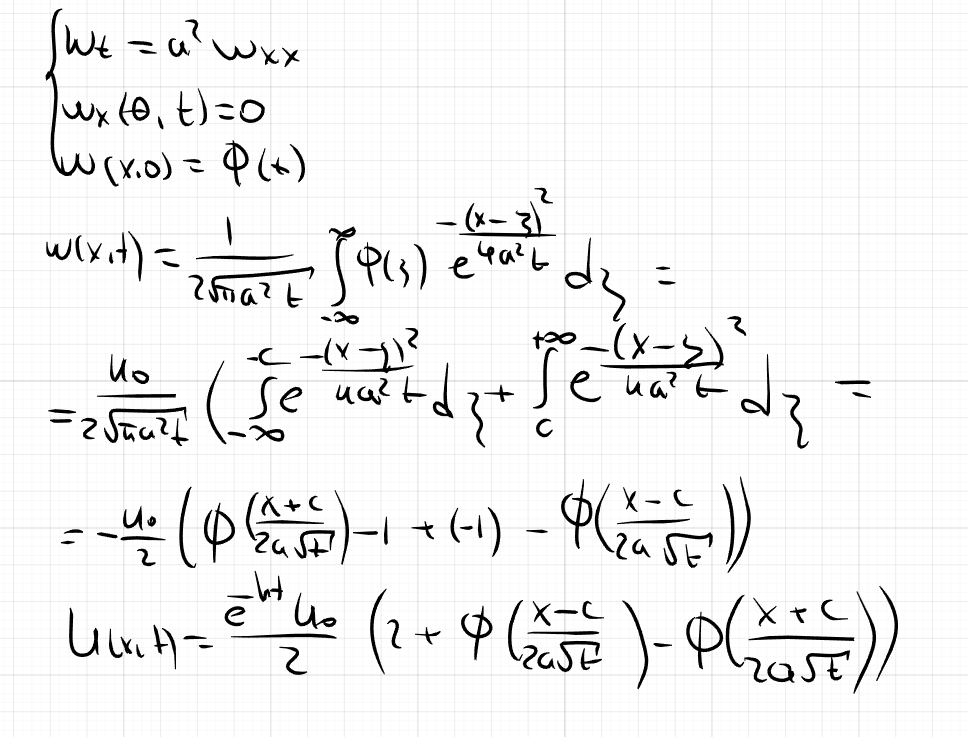 { w_t = a² w_xx
w_x(0, t) = 0
w(x,0) = Φ(x)
w(x,t) = 1/(2√(πa²t)) ∫_{-∞}^{∞} φ(ξ) e^{-(x-ξ)²/(4a²t)} dξ =
= u₀/(2√(πa²t)) ( ∫_{-∞}^{-c} e^{-(x-ξ)²/(4a²t)} dξ + ∫_{c}^{+∞} e^{-(x-ξ)²/(4a²t)} dξ =
= -u₀/2 ( Φ((x+c)/(2a√t)) - 1 + (-1) - Φ((x-c)/(2a√t)) )
U(x,t) = e^{-ht} u₀/2 ( 2 + Φ((x-c)/(2a√t)) - Φ((x+c)/(2a√t)) )